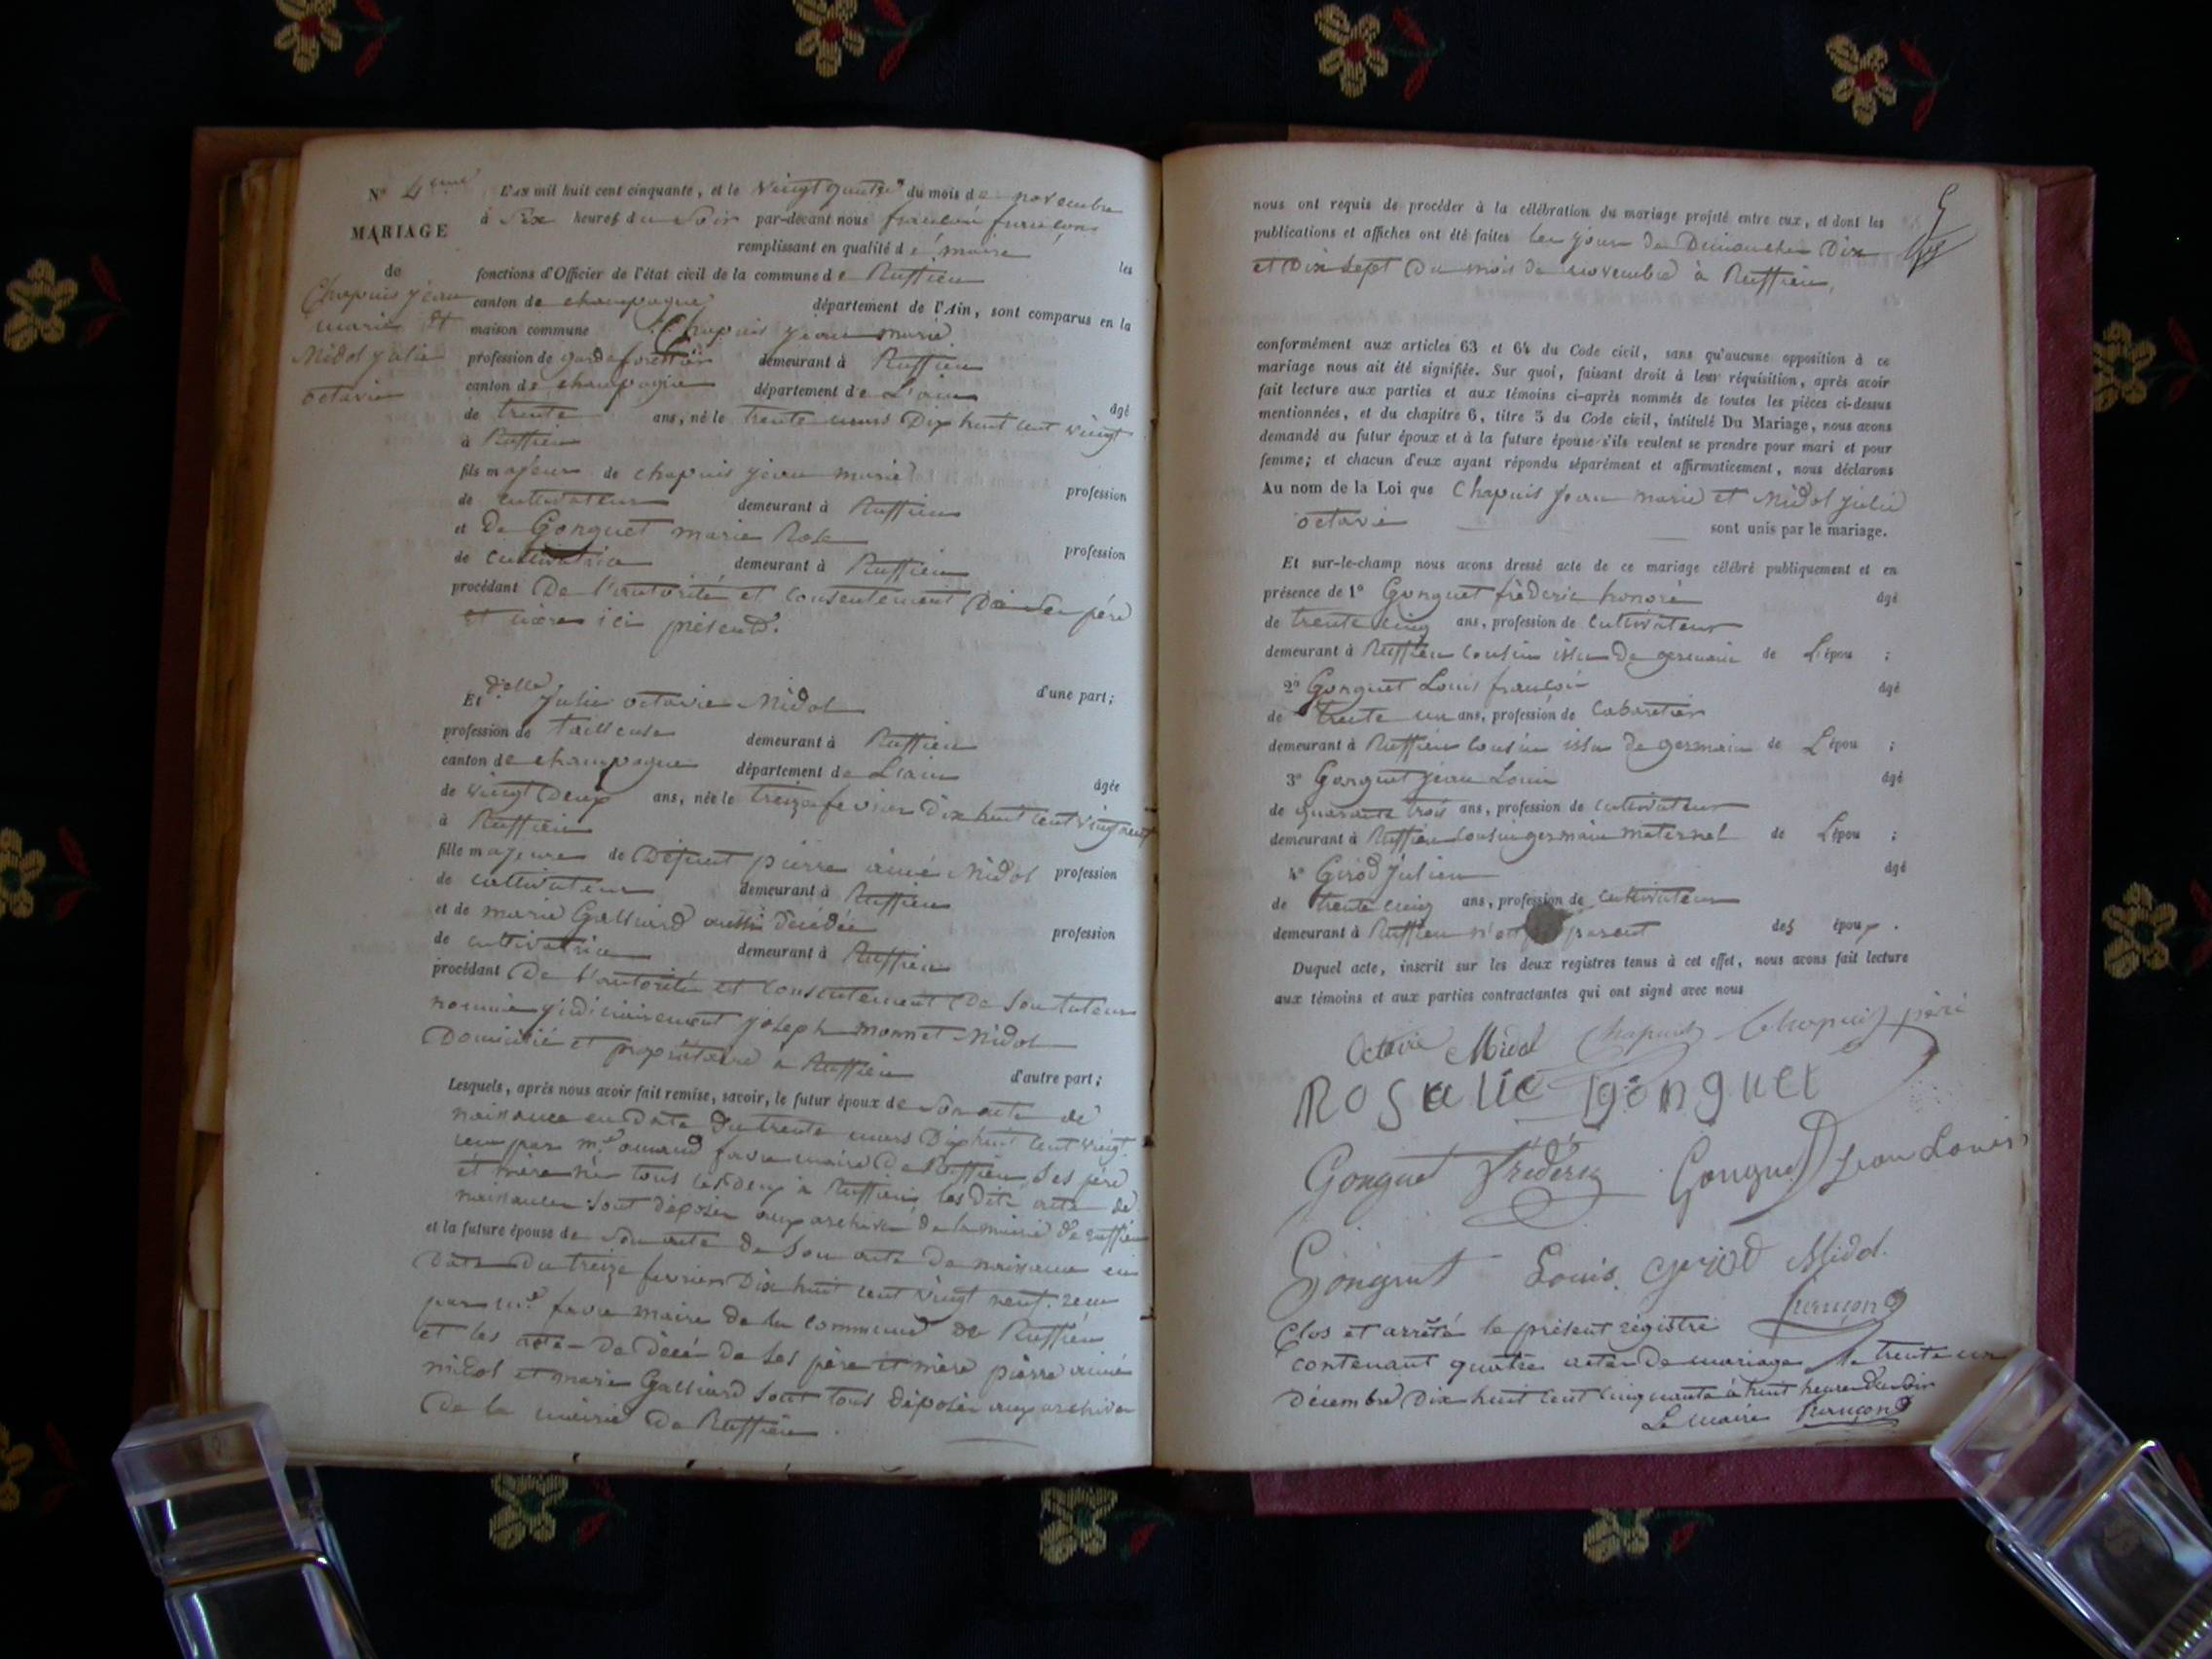 N° 4eme
MARIAGE
de
Chapuis jean
marie et
Midol julie
octavie
L'AN mil huit cent cinquante, et le vingt quatre du mois de novembre
à Six heures du Soir par-devant nous
remplissant en qualité de maire les
fonctions d'Officier de l'état civil de la commune de Ruffieu
canton de champagne département de l'Ain, sont comparus en la
maison commune Chapuis jean marie
profession de garde forestier demeurant à Ruffieu
canton de champagne département de L'ain âgé
de trente ans, né le trente mars Dix huit cent vingt
à Ruffieu
fils majeur de chapuis jean marie profession
de cultivateur demeurant à Ruffieu
et De Gonguet marie Rose profession
de cultivatrice demeurant à Ruffieu
procédant De l'autorité et consentement De Ses père
et mère ici présents.
d'une part;
Et delle julie octavie Midol
profession de tailleuse demeurant à Ruffieu
canton de champagne département de L'ain âgée
de vingt Deux ans, née le treize fevrier Dix huit cent vingt neuf
à Ruffieu
fille majeure de Défunt pierre aimé Midol profession
de cultivateur demeurant à Ruffieu
et de marie Galliard aussi décédée profession
de cultivatrice demeurant à Ruffieu
procédant De l'autorité et consentement De Son tuteur
nommé judiciairement joseph monnet Midol
Domicilié et propriétaire à Ruffieu
d'autre part;
Lesquels, après nous avoir fait remise, savoir, le futur époux de Son acte de
naissance en Date Du trente mars Dix huit cent vingt
reçu par favre maire De Ruffieu, Ses père
et mère né tous les deux à Ruffieu les Dits acte de
naissance Sont déposés aux archives de la mairie de ruffieu
et la future épouse de Son acte de Son acte De naissance en
Date Du treize fevrier Dix huit cent vingt neuf. reçu
par favre maire de la commune de Ruffieu
et les acte De décé de Ses père et mère pierre aimé
midol et marie Galliard Sont tous déposés aux archives
De la mairie De Ruffieu.
5
nous ont requis de procéder à la célébration du mariage projeté entre eux, et dont les
publications et affiches ont été faites les jours de Dimanches Dix
et Dix Sept Du mois de novembre à Ruffieu,
conformément aux articles 63 et 64 du Code civil, sans qu'aucune opposition à ce
mariage nous ait été signifiée. Sur quoi, faisant droit à leur réquisition, après avoir
fait lecture aux parties et aux témoins ci-après nommés de toutes les pièces ci-dessus
mentionnées, et du chapitre 6, titre 5 du Code civil, intitulé Du Mariage, nous avons
demandé au futur époux et à la future épouse s'ils veulent se prendre pour mari et pour
femme; et chacun d'eux ayant répondu séparément et affirmativement, nous déclarons
Au nom de la Loi que Chapuis jean marie et Midol julie
octavie sont unis par le mariage.
Et sur-le-champ nous avons dressé acte de ce mariage célébré publiquement et en
présence de 1° Gonguet fréderic honoré âgé
de trente cinq ans, profession de Cultivateur
demeurant à Ruffieu cousin issu De germain de L'épou ;
2° Gonguet Louis françois âgé
de trente un ans, profession de Cabaretier
demeurant à Ruffieu cousin issu de germain de L'épou ;
3° Gonguet jean Louis âgé
de quarante trois ans, profession de cultivateur
demeurant à Ruffieu cousin germain maternel de L'épou ;
4° Girod julien âgé
de trente cinq ans, profession de cultivateur
demeurant à Ruffieu n'est parent des époux .
Duquel acte, inscrit sur les deux registres tenus à cet effet, nous avons fait lecture
aux témoins et aux parties contractantes qui ont signé avec nous
Octavie Midol Chapuis Chapuis père
ROSalie gonguet
Gonguet Fréderic Gonguet Jean Louis
Gonguet Louis. girod Midol.
Clos et arrêté le présent régistre
contenant quatre actes de mariages le trente un
décembre Dix huit cent cinquante à huit heures du Soir
Le maire